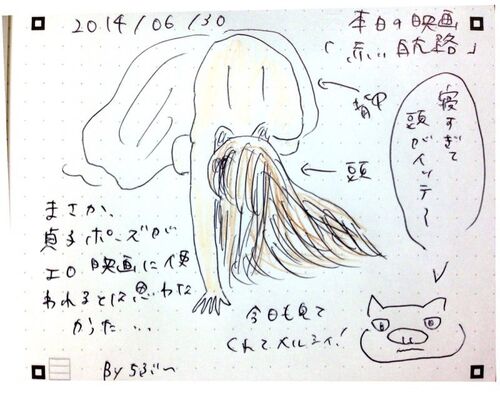 2014/06/30
本日の映画
「赤い航路」
背中
頭
寝すぎて
頭がイッテ〜
まさか、
貞子ポーズが
エロ映画に使
われるとは思わな
かった...
今日も見て
くれてメルシィ!
By うろぶ〜